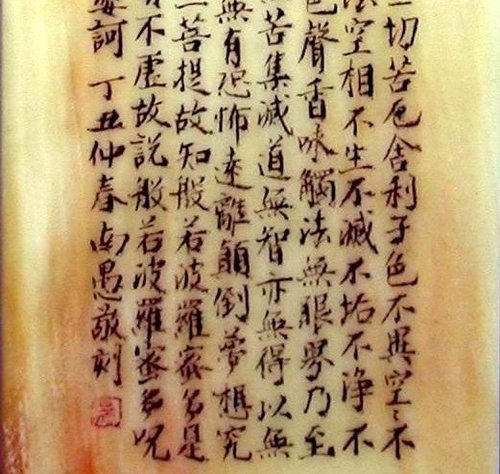 切苦厄舍利子色不異空〻不
法空相不生不滅不垢不淨不
色聲香味觸法無眼界乃至
苦集滅道無智亦無得以無
無有恐怖遠離顛倒夢想究
菩提故知般若波羅蜜多是
不虛故說般若波羅蜜多呪
婆訶 丁丑仲春南愚敬刻